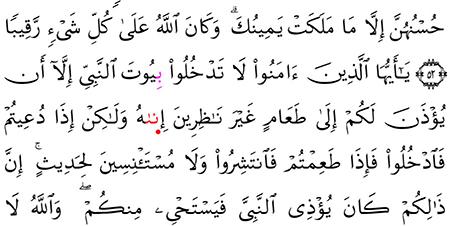 حُسْنُهُنَّ إِلَّا مَا مَلَكَتْ يَمِينُكَ ۗ وَكَانَ اللَّهُ عَلَىٰ كُلِّ شَىْءٍ رَّقِيبًا
﴿٥٢﴾ يَـٰٓأَيُّهَا الَّذِينَ ءَامَنُوا۟ لَا تَدْخُلُوا۟ بِيُوتَ النَّبِىِّ إِلَّآ أَن
يُؤْذَنَ لَكُمْ إِلَىٰ طَعَامٍ غَيْرَ نَـٰظِرِينَ إِنَىٰهُ وَلَـٰكِنْ إِذَا دُعِيتُمْ
فَٱدْخُلُوا۟ فَإِذَا طَعِمْتُمْ فَٱنتَشِرُوا۟ وَلَا مُسْتَـْٔنِسِينَ لِحَدِيثٍ ۚ إِنَّ
ذَٰلِكُمْ كَانَ يُؤْذِى النَّبِىَّ فَيَسْتَحْىِۦ مِنكُمْ ۖ وَاللَّهُ لَا